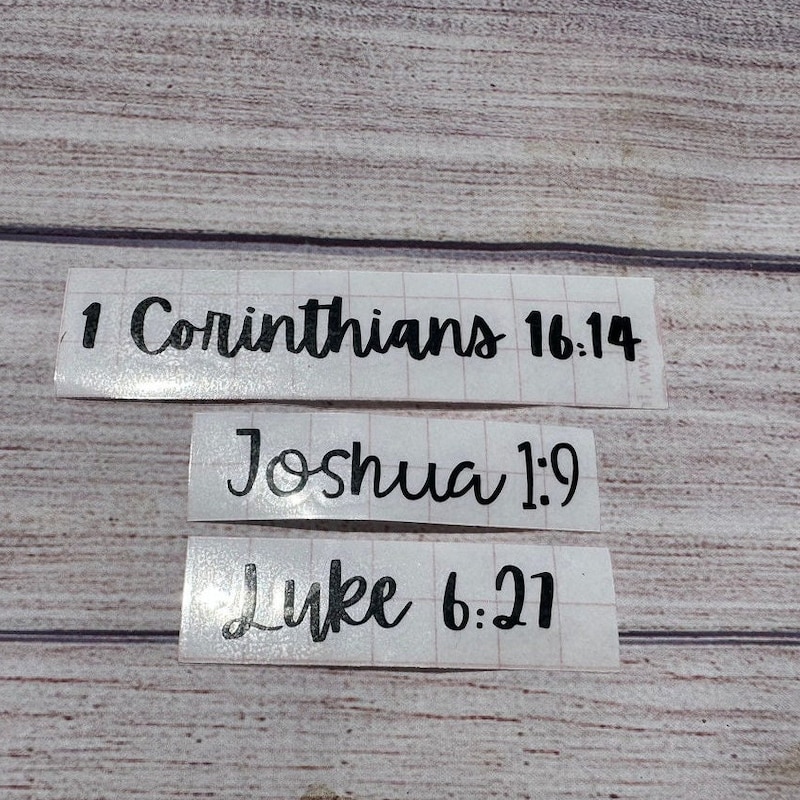 1 Corinthians 16:14
Joshua 1:9
Luke 6:27